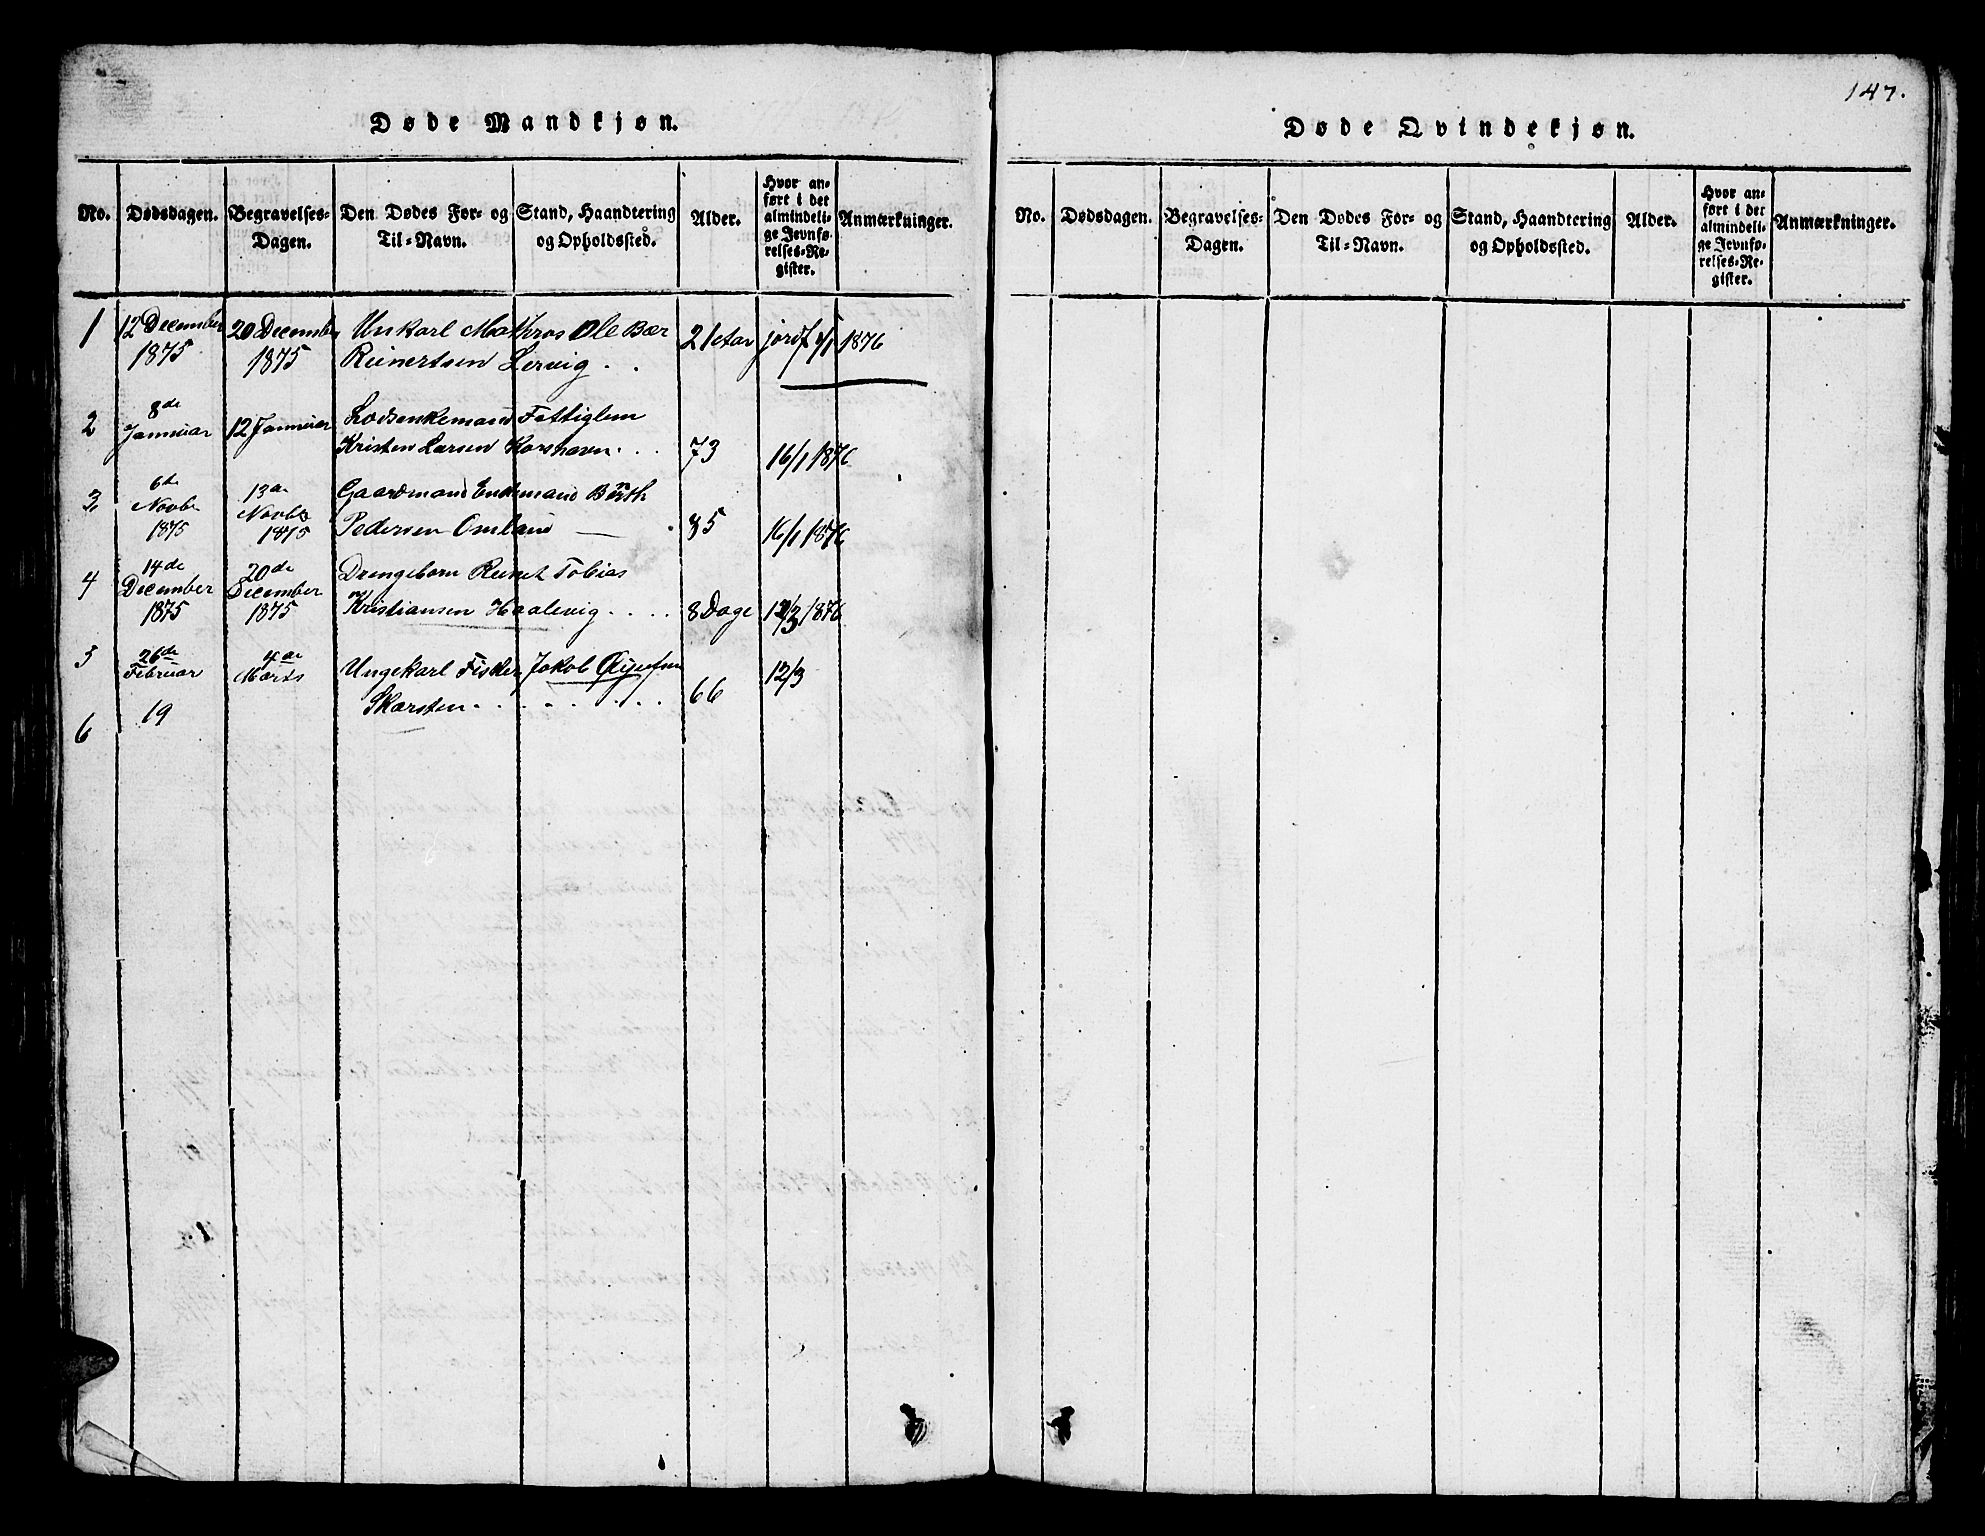 147.
Døde Mandkjøn.
No. Dødsdagen. Begravelses-Dagen. Den Dødes For- og Til-Navn. Stand, Haandtering og Opholdssted. Alder. Hvor anført i det almindelige Jevnførelses-Register. Anmærkninger.
1 12 December 20 December Unkarl Mathros Ole Bær 21 aar jordf 1876
1875 1875 Reinertsen Lervig . .
2 8de Januar 12 Januar Lodsenkemand Fattiglem
Kristen Larsen Korshavn . . . 73 16/1 1876
3 6te Novbr 1875 13de Novbr 1875 Gaardmand Enkemand Berth
Pedersen Omland — . 85 16/1 1876
4 14de December 1875 20de December 1875 Drengebarn Reinet Tobias
Kristiansen Haalevig . . . . 8 Dage 12/3 1876
5 26de Februar 4de Marts Ungekarl Fisker Jakob
Skarsten . . . . . . . 66 12/3
6 19
Døde Qvindekjøn.
No. Dødsdagen. Begravelses-Dagen. Den Dødes For- og Til-Navn. Stand, Haandtering og Opholdssted. Alder. Hvor anført i det almindelige Jevnførelses-Register. Anmærkninger.